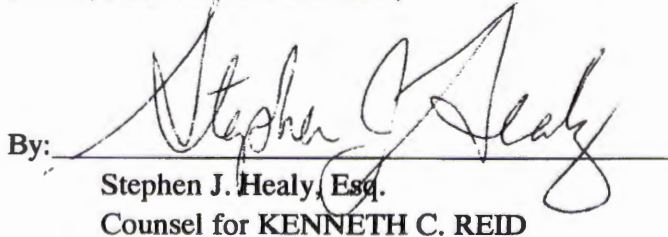 By: Stephen J Healy
Stephen J. Healy, Esq.
Counsel for KENNETH C. REID